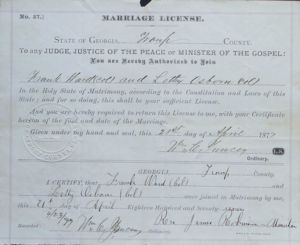 MARRIAGE LICENSE.
No. 37.
STATE OF GEORGIA, Troup COUNTY.
To any JUDGE, JUSTICE OF THE PEACE or MINISTER OF THE GOSPEL:
You are Hereby Authorized to Join
Frank and Letty
In the Holy State of Matrimony, according to the Constitution and Laws of this
State; and for so doing, this shall be your sufficient License.
And you are hereby required to return this License to me, with your Certificate
hereon of the fact and date of the Marriage.
Given under my hand and seal, this 21st day of April 1877
Wm C. Yancey L.S.
Ordinary.
GEORGIA, Troup County.
I CERTIFY, that Frank Ward (Col)
and Letty (Col) were joined in Matrimony by me, this
day of April Eighteen Hundred and Seventy seven
Recorded Wm C. Yancey Rev. Minister